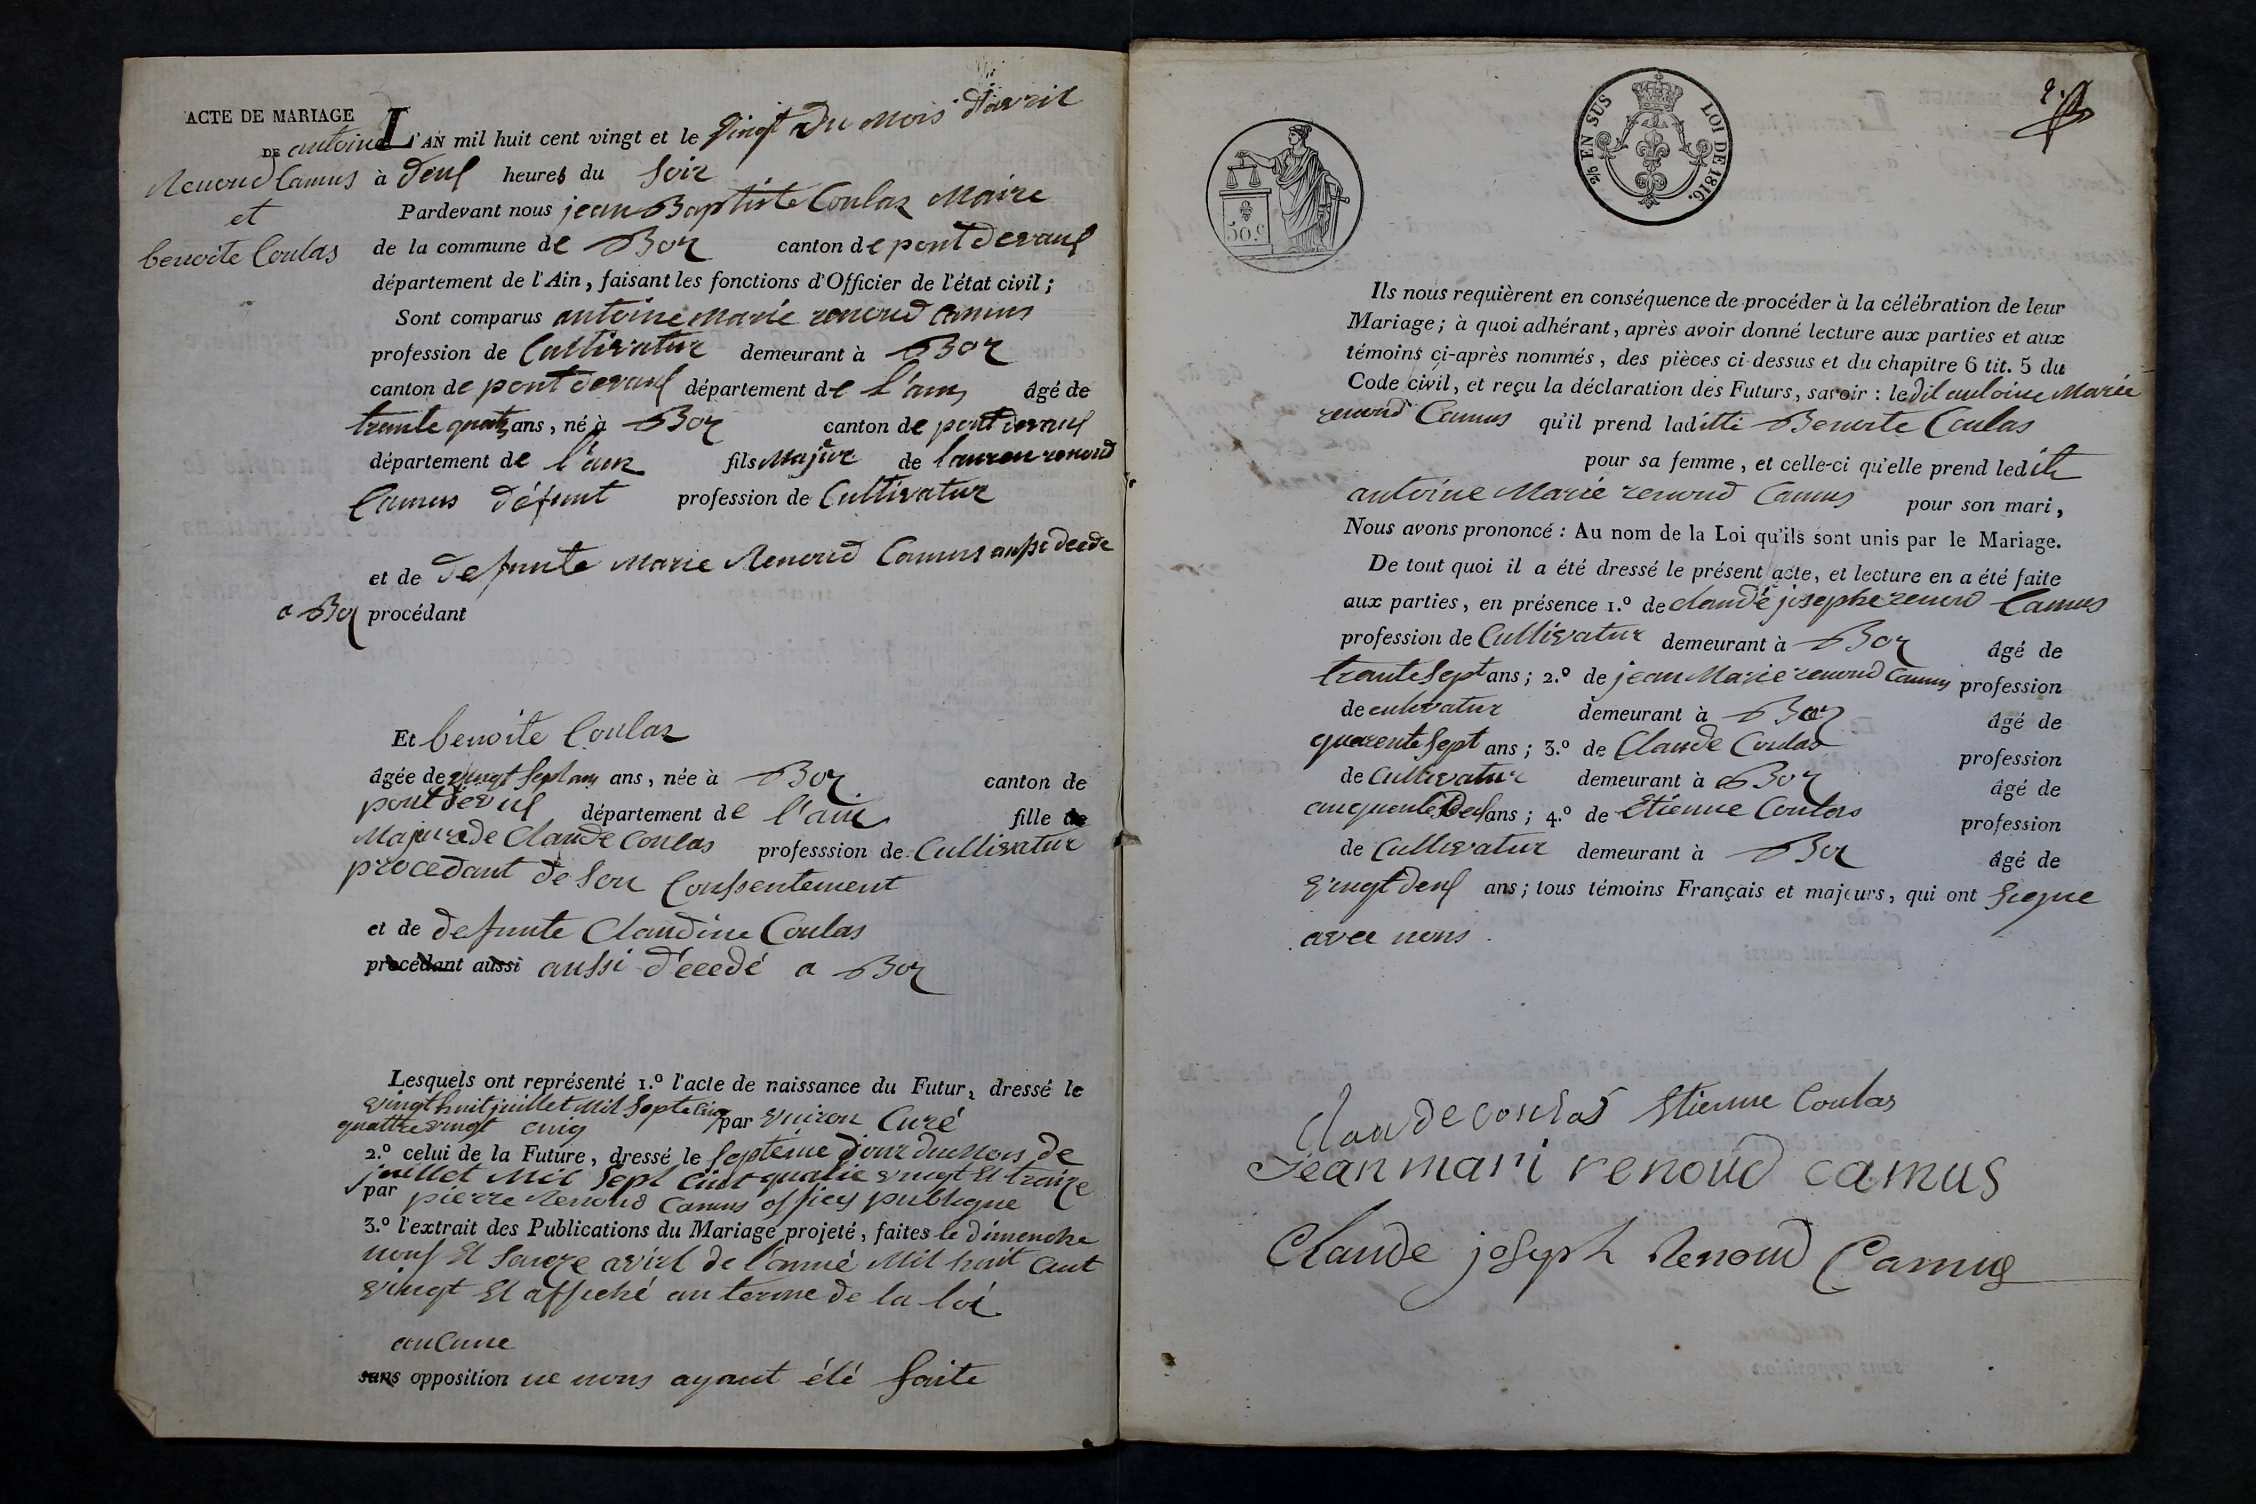 ACTE DE MARIAGE
DE antoine
Renoud Camus
et
benoite Coulas
L'AN mil huit cent vingt et le vingt du mois d'avril
à deux heures du soir
Pardevant nous jean Baptiste Coulas Maire
de la commune de Boz canton de pont devaux
département de l'Ain, faisant les fonctions d'Officier de l'état civil;
Sont comparus antoine marie renoud Camus
profession de Cultivatur demeurant à Boz
canton de pont devaux département de l'ain âgé de
trante quatre ans, né à Boz canton de pont devaux
département de l'ain fils Majeur de lauren renoud
Camus défunt profession de Cultivatur
et de defunte Marie Renoud Camus aussi decde
a Boz procédant
Et benoite Coulas
âgée de vingt sept ans ans, née à Boz canton de
pont devux département de l'ain fille de
Majure de Claude Coulas professsion de Cultivatur
procedant de son Consentement
et de defunte Claudine Coulas
procédant aussi aussi décedé a Boz
Lesquels ont représenté 1.º l'acte de naissance du Futur, dressé le
vingt huit juillet Mil Sept Cin
quattre vingt cinq par Curé
2.º celui de la Future, dressé le septieme jour du Mois de
juillet Mil Sept Cint quatre vingt et traize
par pierre Renoud Camus officy publique
3.º l'extrait des Publications du Mariage projeté, faites le dimenche
nouf Et Saize avirl de l'anné Mil huit Cent
vingt Et affiché au terme de la loi
aucune
sans opposition ne nous ayant été faite
50.c
2/5 EN SUS LOI DE 1816.
2.
Ils nous requièrent en conséquence de procéder à la célébration de leur
Mariage; à quoi adhérant, après avoir donné lecture aux parties et aux
témoins ci-après nommés, des pièces ci-dessus et du chapitre 6 tit. 5 du
Code civil, et reçu la déclaration des Futurs, savoir: ledit antoine Marie
renoud Camus qu'il prend laditte Benoite Coulas
pour sa femme, et celle-ci qu'elle prend ledit
antoine Marie renoud Camus pour son mari,
Nous avons prononcé: Au nom de la Loi qu'ils sont unis par le Mariage.
De tout quoi il a été dressé le présent acte, et lecture en a été faite
aux parties, en présence 1.º de claude josephe renoud Camus
profession de Cultivatur demeurant à Boz âgé de
trante Sept ans; 2.º de jean Marie renoud Camus profession
de cultivatur demeurant à Boz âgé de
quarente Sept ans; 3.º de Claude Coulas profession
de Cultivatur demeurant à Boz âgé de
cinquente Deux ans; 4.º de Etienne Coulas profession
de Cultivatur demeurant à Boz âgé de
vingt deux ans; tous témoins Français et majeurs, qui ont signe
avec nous.
Claude coulas Etienne Coulas
Jean mari renoud camus
Claude joseph Renoud Camus